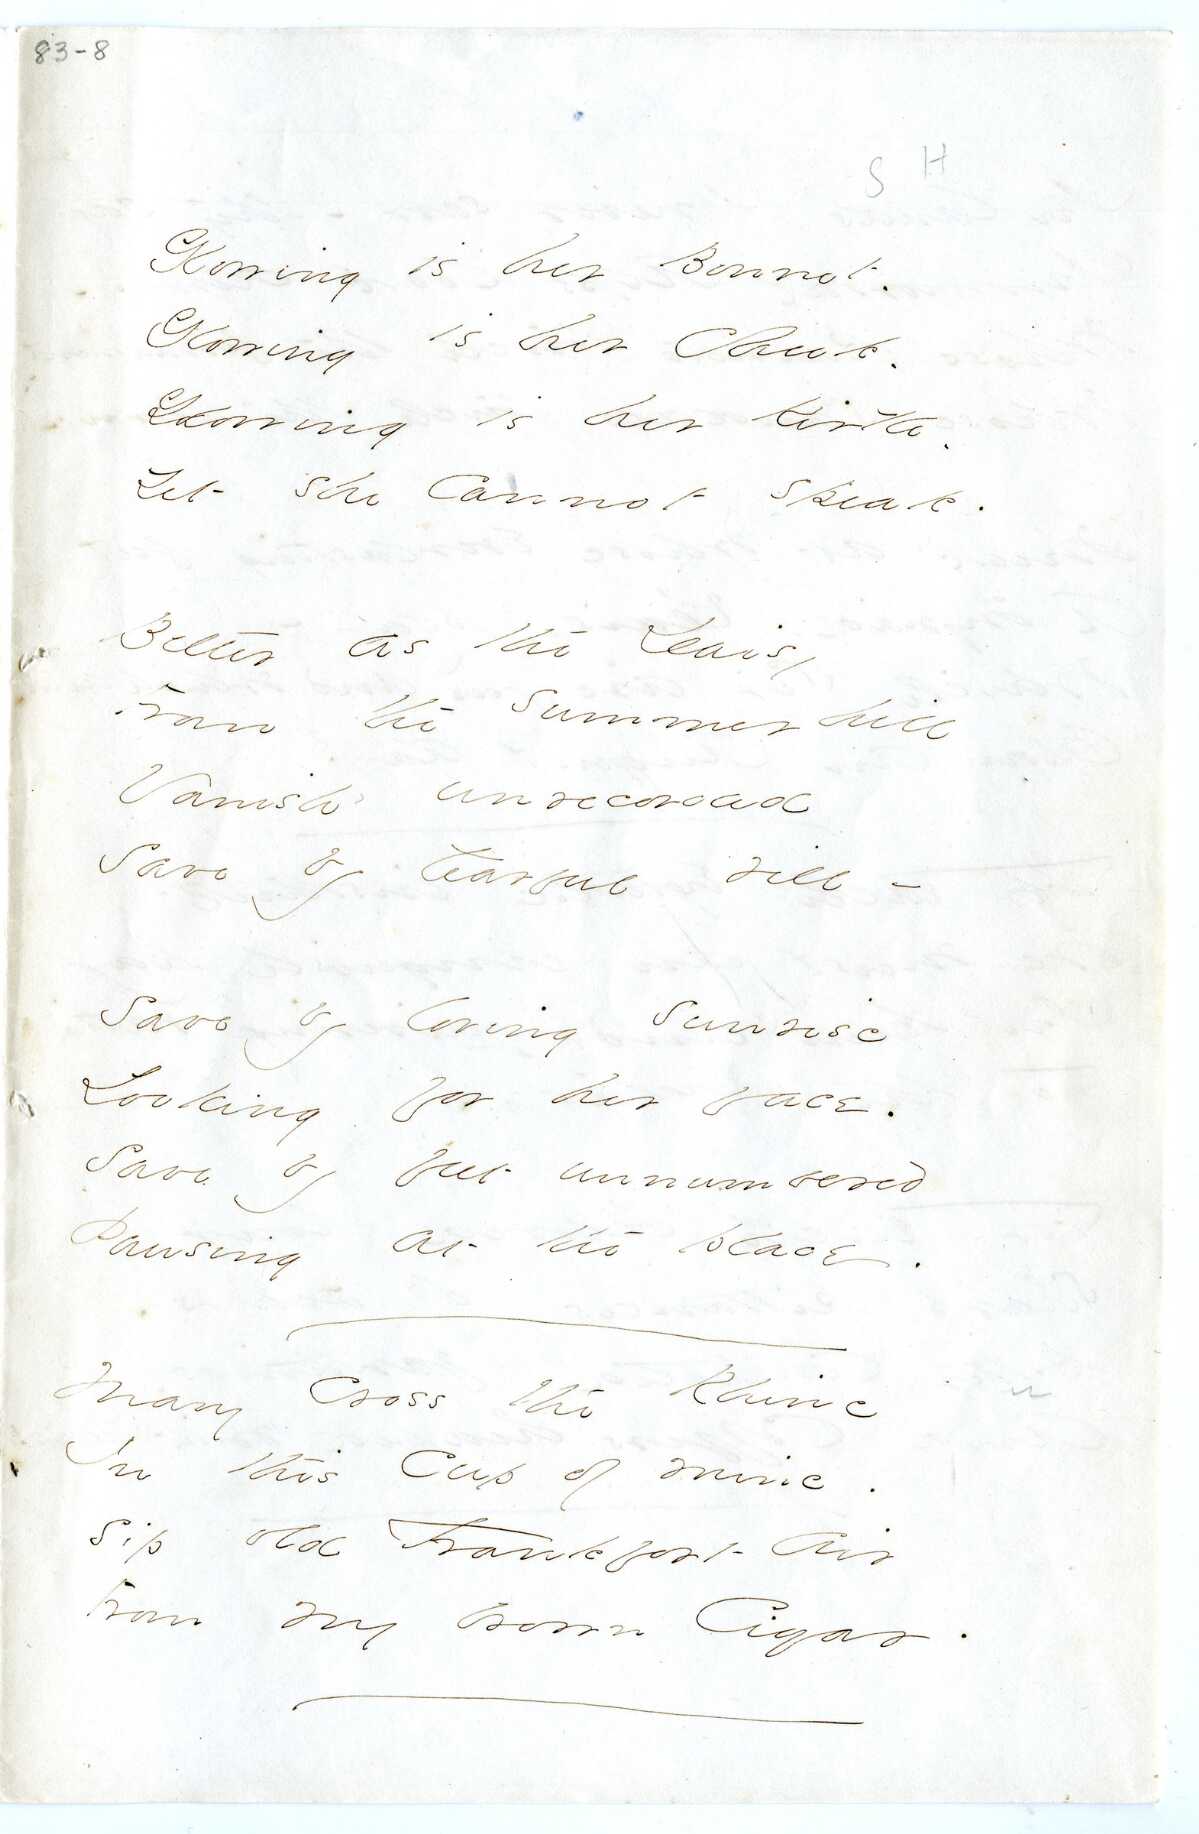 83-8
S H
Glowing is her Bonnet.
Glowing is her Cheek.
Glowing is her Kirtle.
Yet she Cannot speak.
Better as the Daisy
From the Summer hill
Vanish unrecorded
Save by tearful rill -
Save by loving Sunrise
Looking for her face.
Save by feet unnumbered
Pausing at the place.
Many Cross the Rhine
In this Cup of mine.
Sip old Frankfort Air
From my brown Cigar.